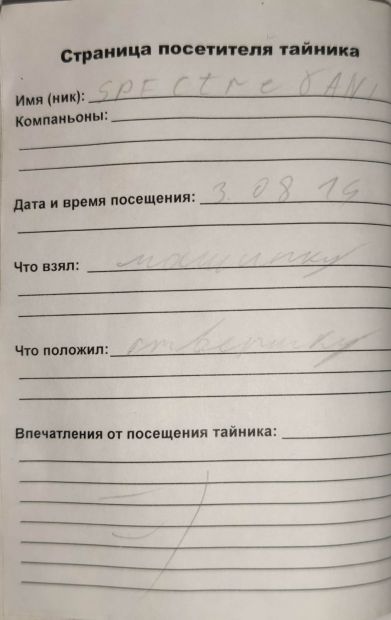 Страница посетителя тайника
Имя (ник): SPECtre DANI
Компаньоны:
Дата и время посещения: 3.08 19
Что взял: машинку
Что положил: отвертку
Впечатления от посещения тайника:
=)